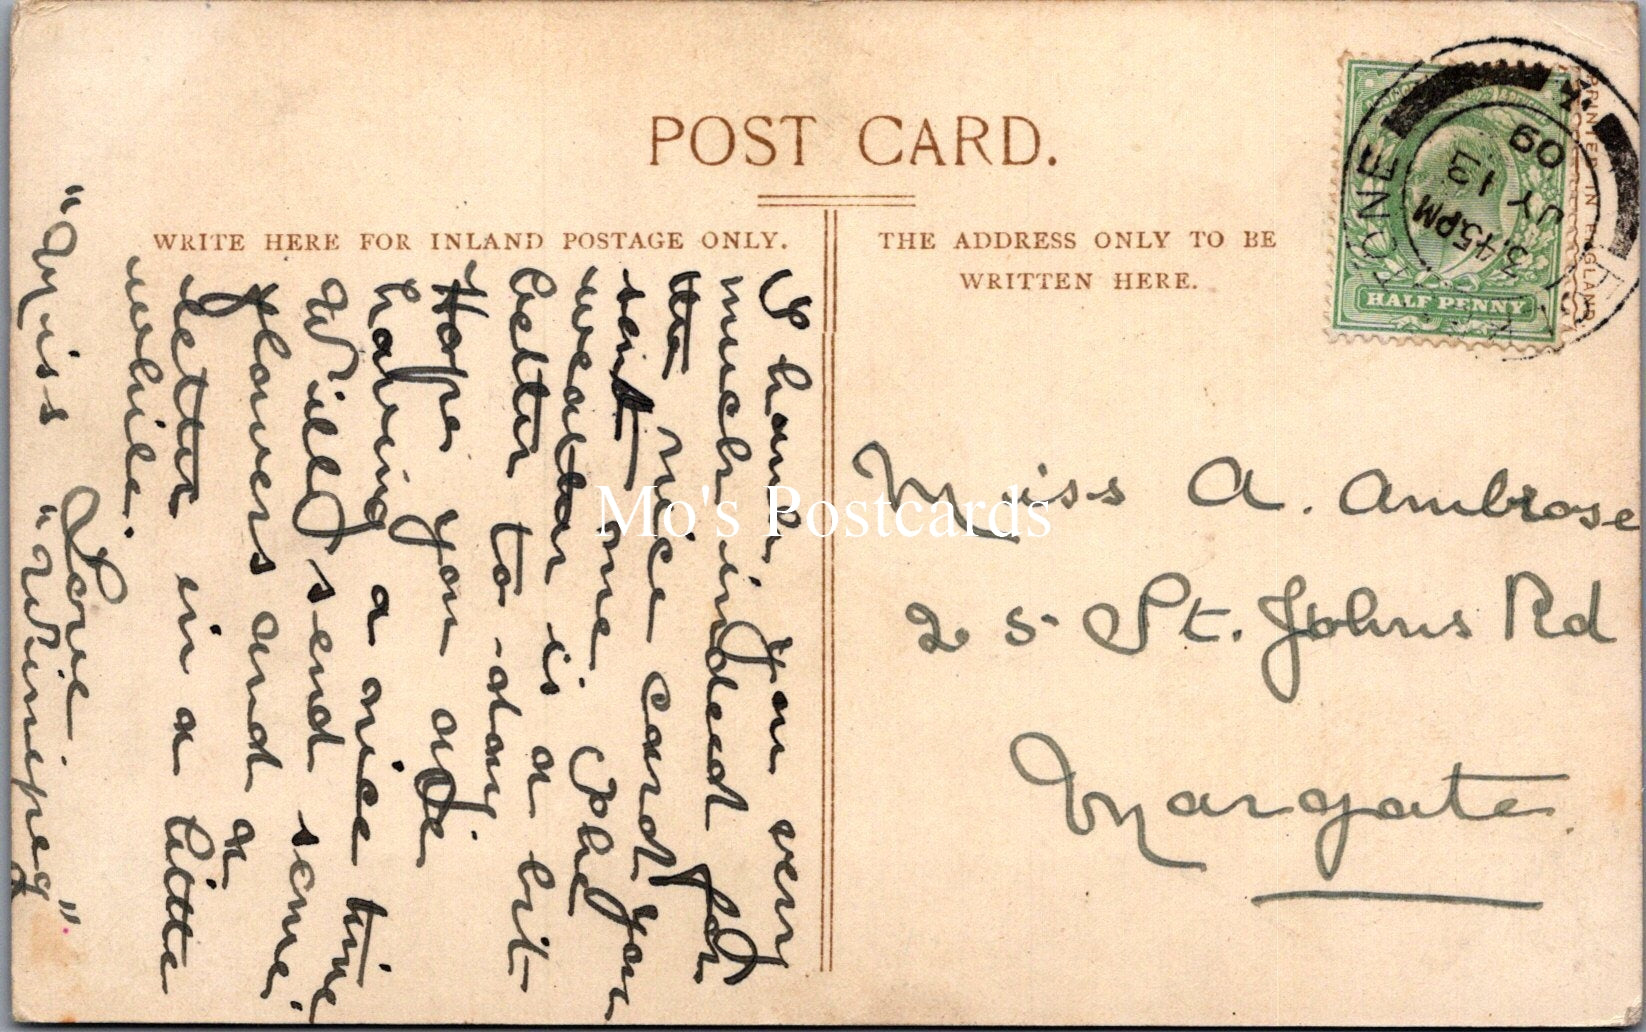 POST CARD.
WRITE HERE FOR INLAND POSTAGE ONLY.
THE ADDRESS ONLY TO BE
WRITTEN HERE.
PRINTED IN ENGLAND
HALF PENNY
3.45PM
JY 13
09
Thank you very
much indeed for
the nice card you
sent me. The
weather is a bit
better to-day
Hope you are
having a nice time
Will send some
flowers and a
letter in a little
while.
Love
"Miss "Winipeg".
Miss A. Ambrose
25 St. Johns Rd
Margate.
Mo's Postcards